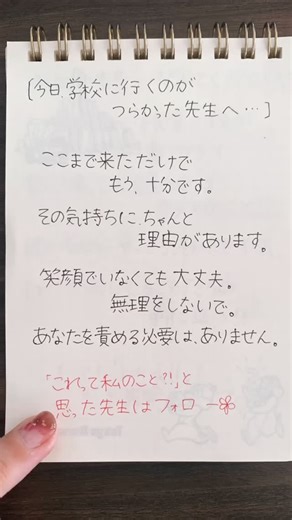 〔今日、学校に行くのが
つらかった先生へ…〕
ここまで来ただけで
もう、十分です。
その気持ちに、ちゃんと
理由があります。
笑顔でいなくても大丈夫。
無理をしないで。
あなたを責める必要は、ありません。
「これって私のこと?!」と
思った先生はフォロー